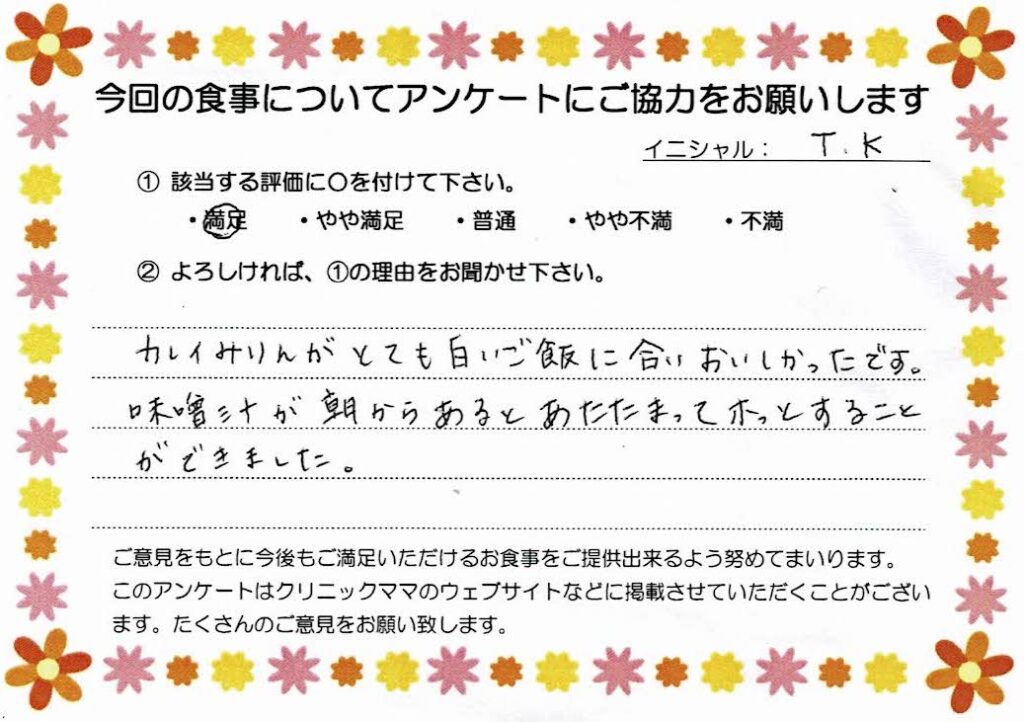 今回の食事についてアンケートにご協力をお願いします
イニシャル: T.K
① 該当する評価に〇を付けて下さい。
・満足 ・やや満足 ・普通 ・やや不満 ・不満
② よろしければ、①の理由をお聞かせ下さい。
カレイみりんがとても白いご飯に合いおいしかったです。
味噌汁が朝からあるとあたたまってホッとすること
ができました。
ご意見をもとに今後もご満足いただけるお食事をご提供出来るよう努めてまいります。
このアンケートはクリニックママのウェブサイトなどに掲載させていただくことがござい
ます。たくさんのご意見をお願い致します。